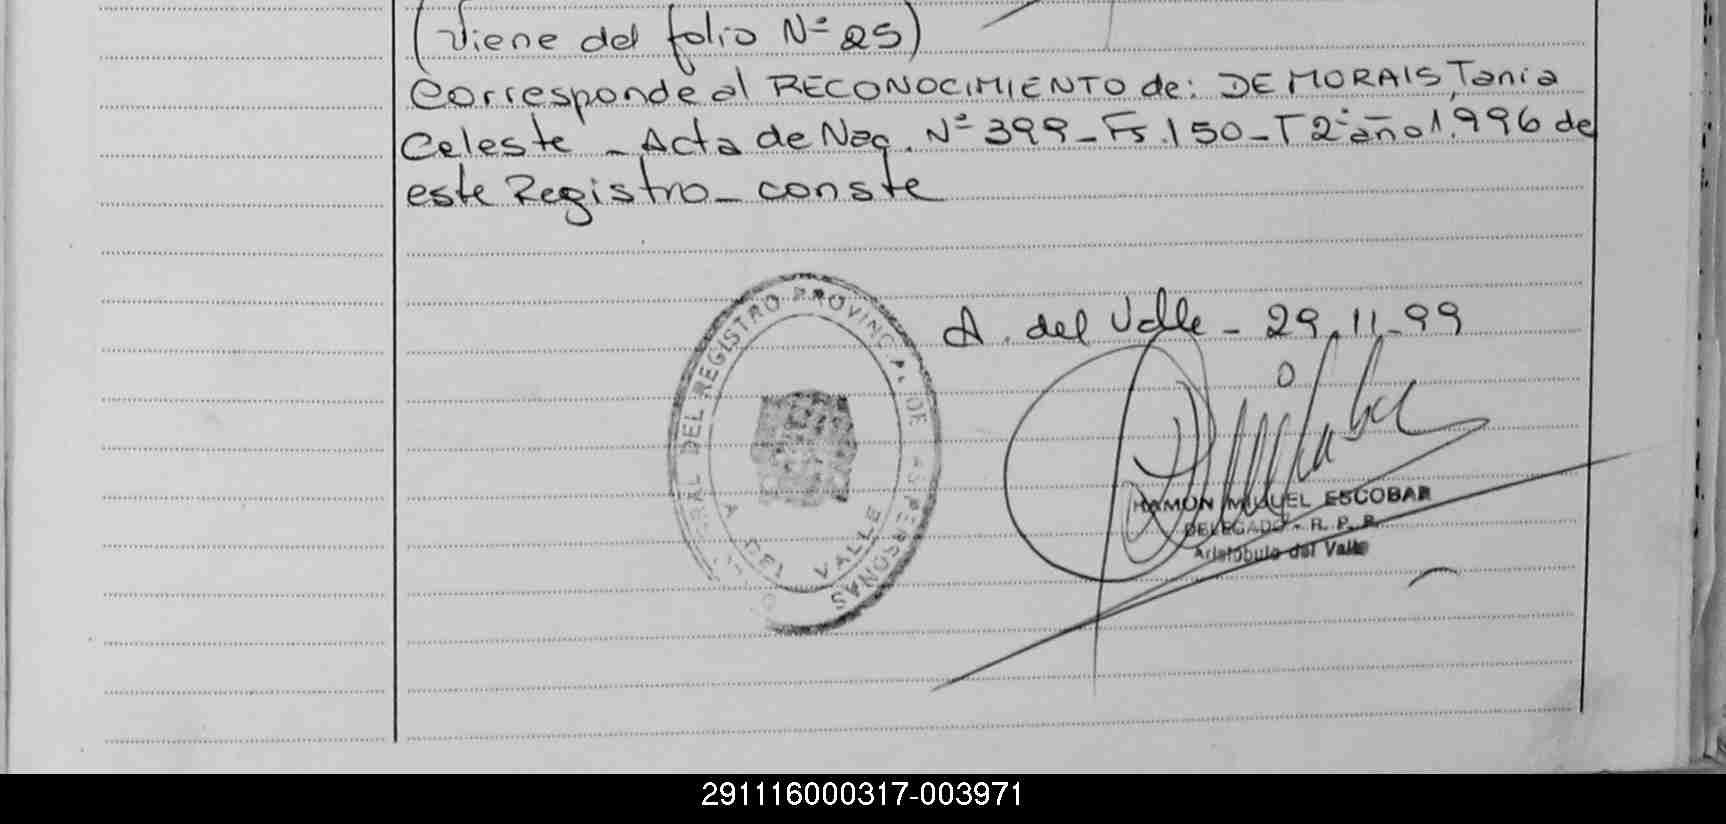 (Viene del folio Nº 25)
Corresponde al RECONOCIMIENTO de: DE MORAIS, Tania
Celeste - Acta de Nac. Nº 399 - Fs. 150 - T 2º año 1.996 de
este Registro - conste
A. del Valle - 29.11.99
REGISTRO PROVINCIAL DE LAS PERSONAS
A. DEL VALLE
RAMON MIGUEL ESCOBAR
DELEGADO - R. P. P.
Aristobulo del Valle
291116000317-003971